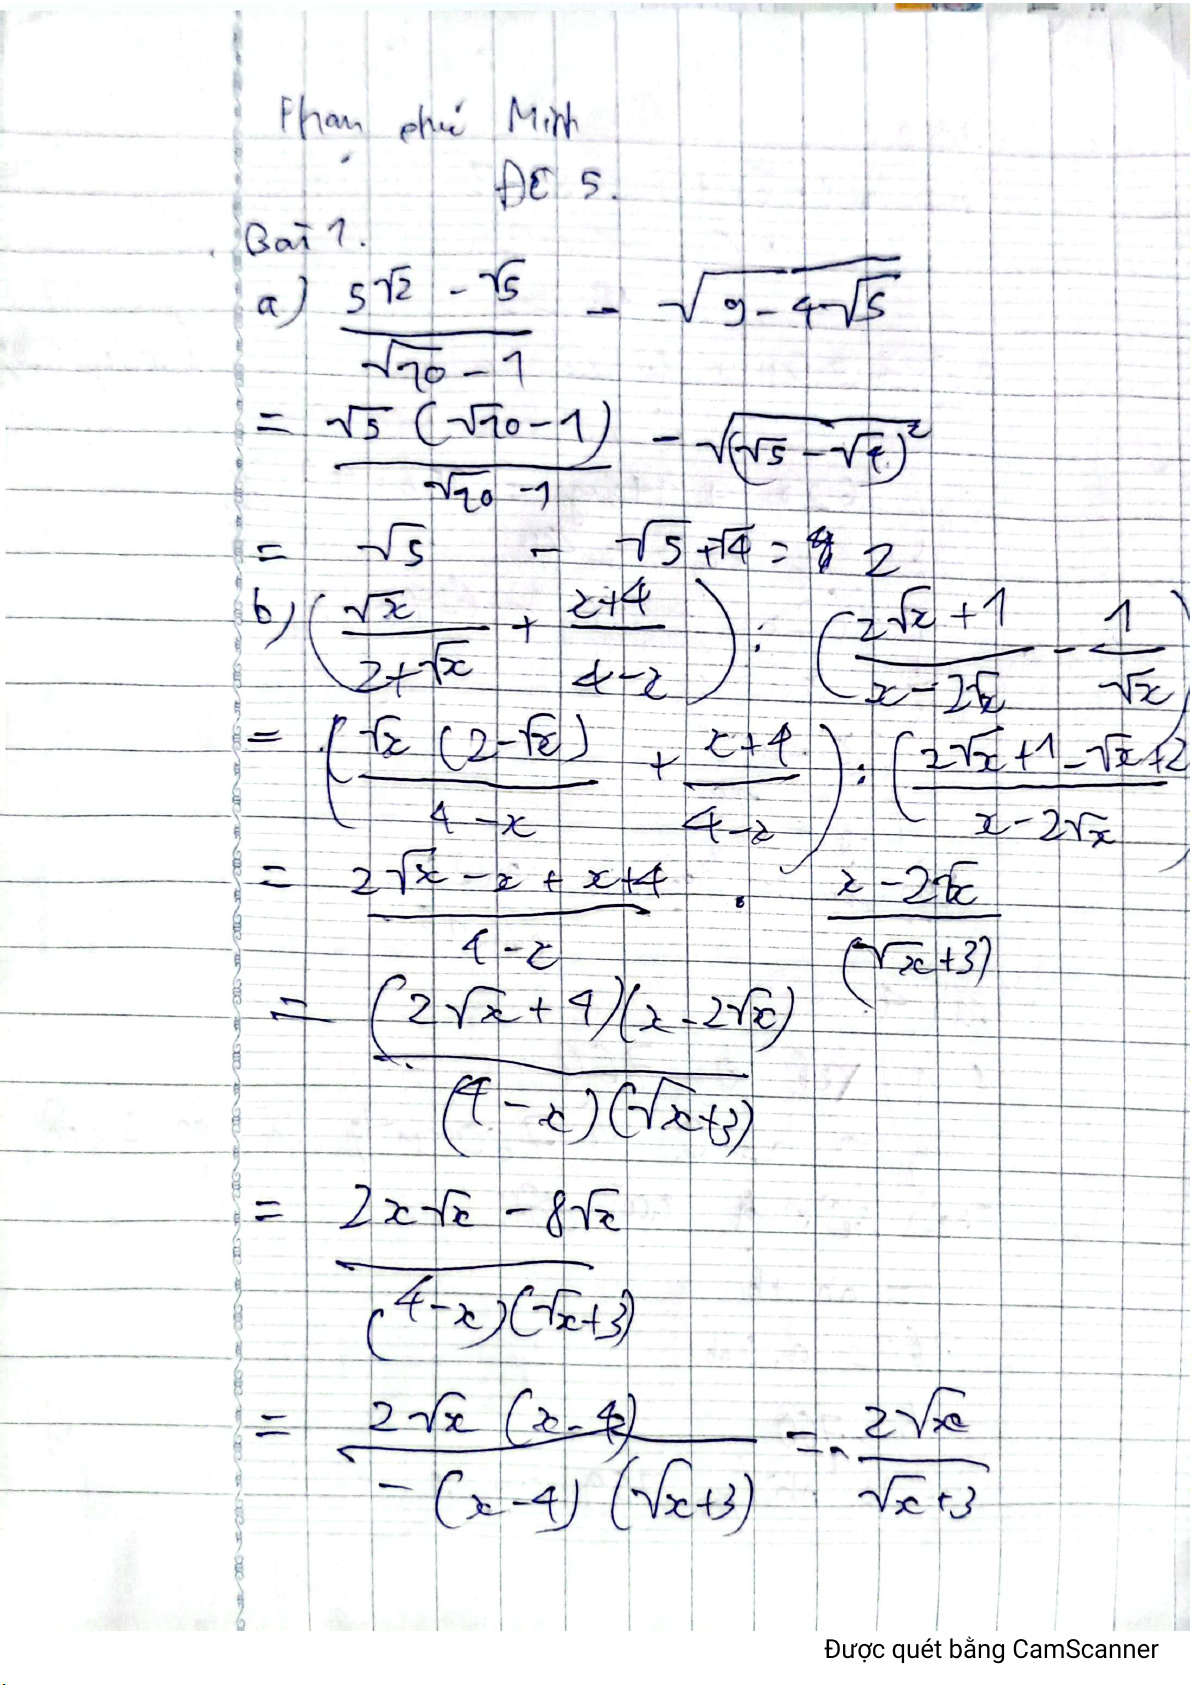 Phan phú Minh
ĐỀ 5.
Bài 1.
a) (5√2 - √5)/(√10 - 1) - √(9 - 4√5)
= √5 (√10 - 1)/(√10 - 1) - √((√5 - √4)²)
= √5 - √5 + √4 = 2
b) (√x/(2+√x) + (x+4)/(4-x)) : ((2√x + 1)/(x - 2√x) - 1/√x)
= (√x (2-√x)/(4-x) + (x+4)/(4-x)) : ((2√x+1-√x+2)/(x-2√x))
= (2√x - x + x+4)/(4-x) . (x - 2√x)/(√x+3)
= (2√x + 4)(x - 2√x)/((4-x)(√x+3))
= (2x√x - 8√x)/((4-x)(√x+3))
= 2√x (x-4)/(-(x-4)(√x+3)) = - 2√x/(√x+3)
Được quét bằng CamScanner